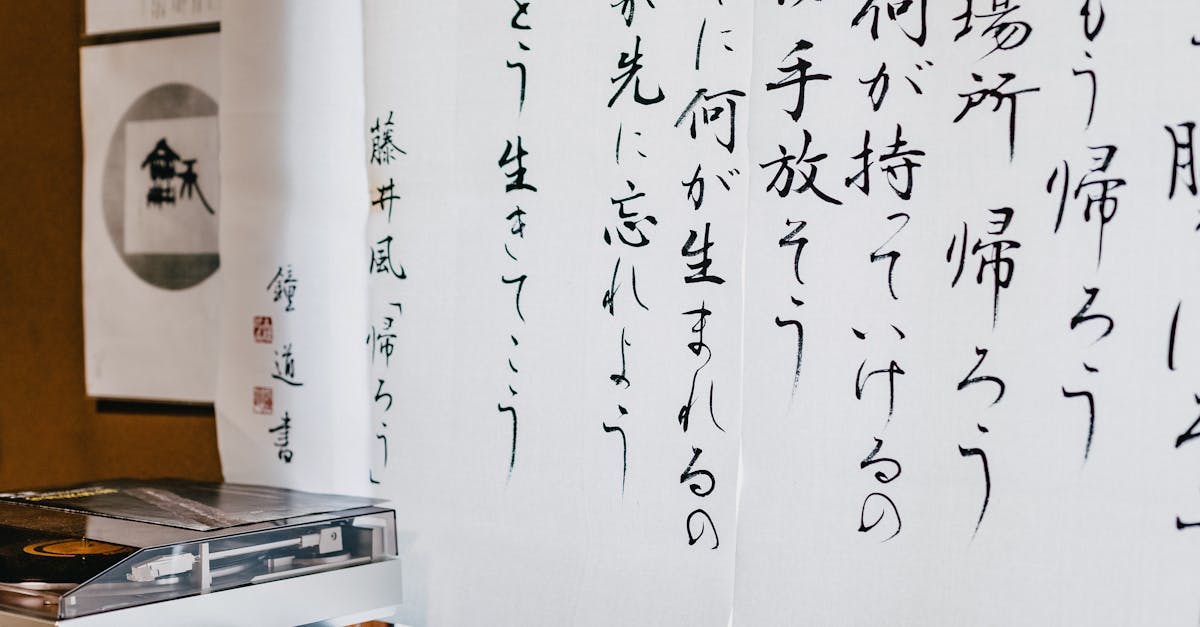 もう帰ろう
場所 帰ろう
何が持っていけるの
手放そう
に何が生まれるの
が先に忘れよう
とう生きてこう
藤井風「帰ろう」
鐘道書
龢